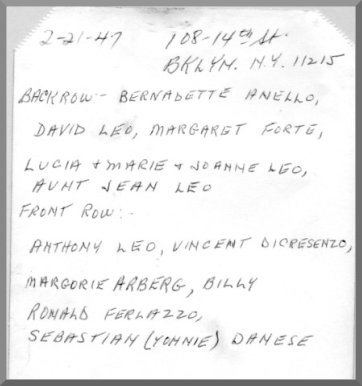 2-21-47 108-14th St.
BKLYN. N.Y. 11215
BACKROW:- BERNADETTE ANELLO,
DAVID LEO, MARGARET FORTE,
LUCIA + MARIE + JOANNE LEO,
AUNT JEAN LEO
FRONT ROW:-
ANTHONY LEO, VINCENT DICRESENZO,
MARGORIE ARBERG, BILLY
RONALD FERLAZZO,
SEBASTIAN (YOHNIE) DANESE